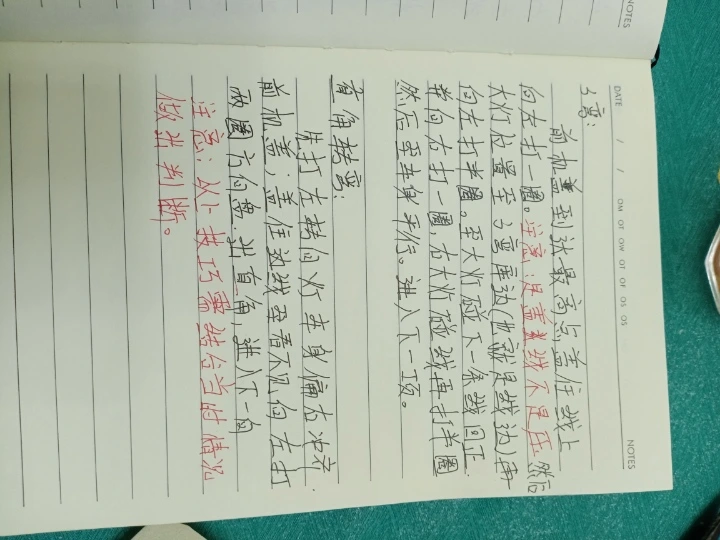 NOTES
DATE / / OM OT OW OT OF OS OS
NOTES
S弯:
前机盖到达最高点盖住线上
向左打一圈。注意:是盖着线不是压 然后
大灯位置至S弯库边(也就是线边)再
向左打半圈。至大灯碰下一条线回正
前向右打一圈 右大灯碰线再打半圈
然后至车身平行。进入下一项。
直角转弯:
先打左转向灯 车身偏右 冲齐
前机盖;盖住边线至看不见向左打
两圈方向盘.出直角,进入下一向
注意:以上技巧需结合当时情况
做出判断。